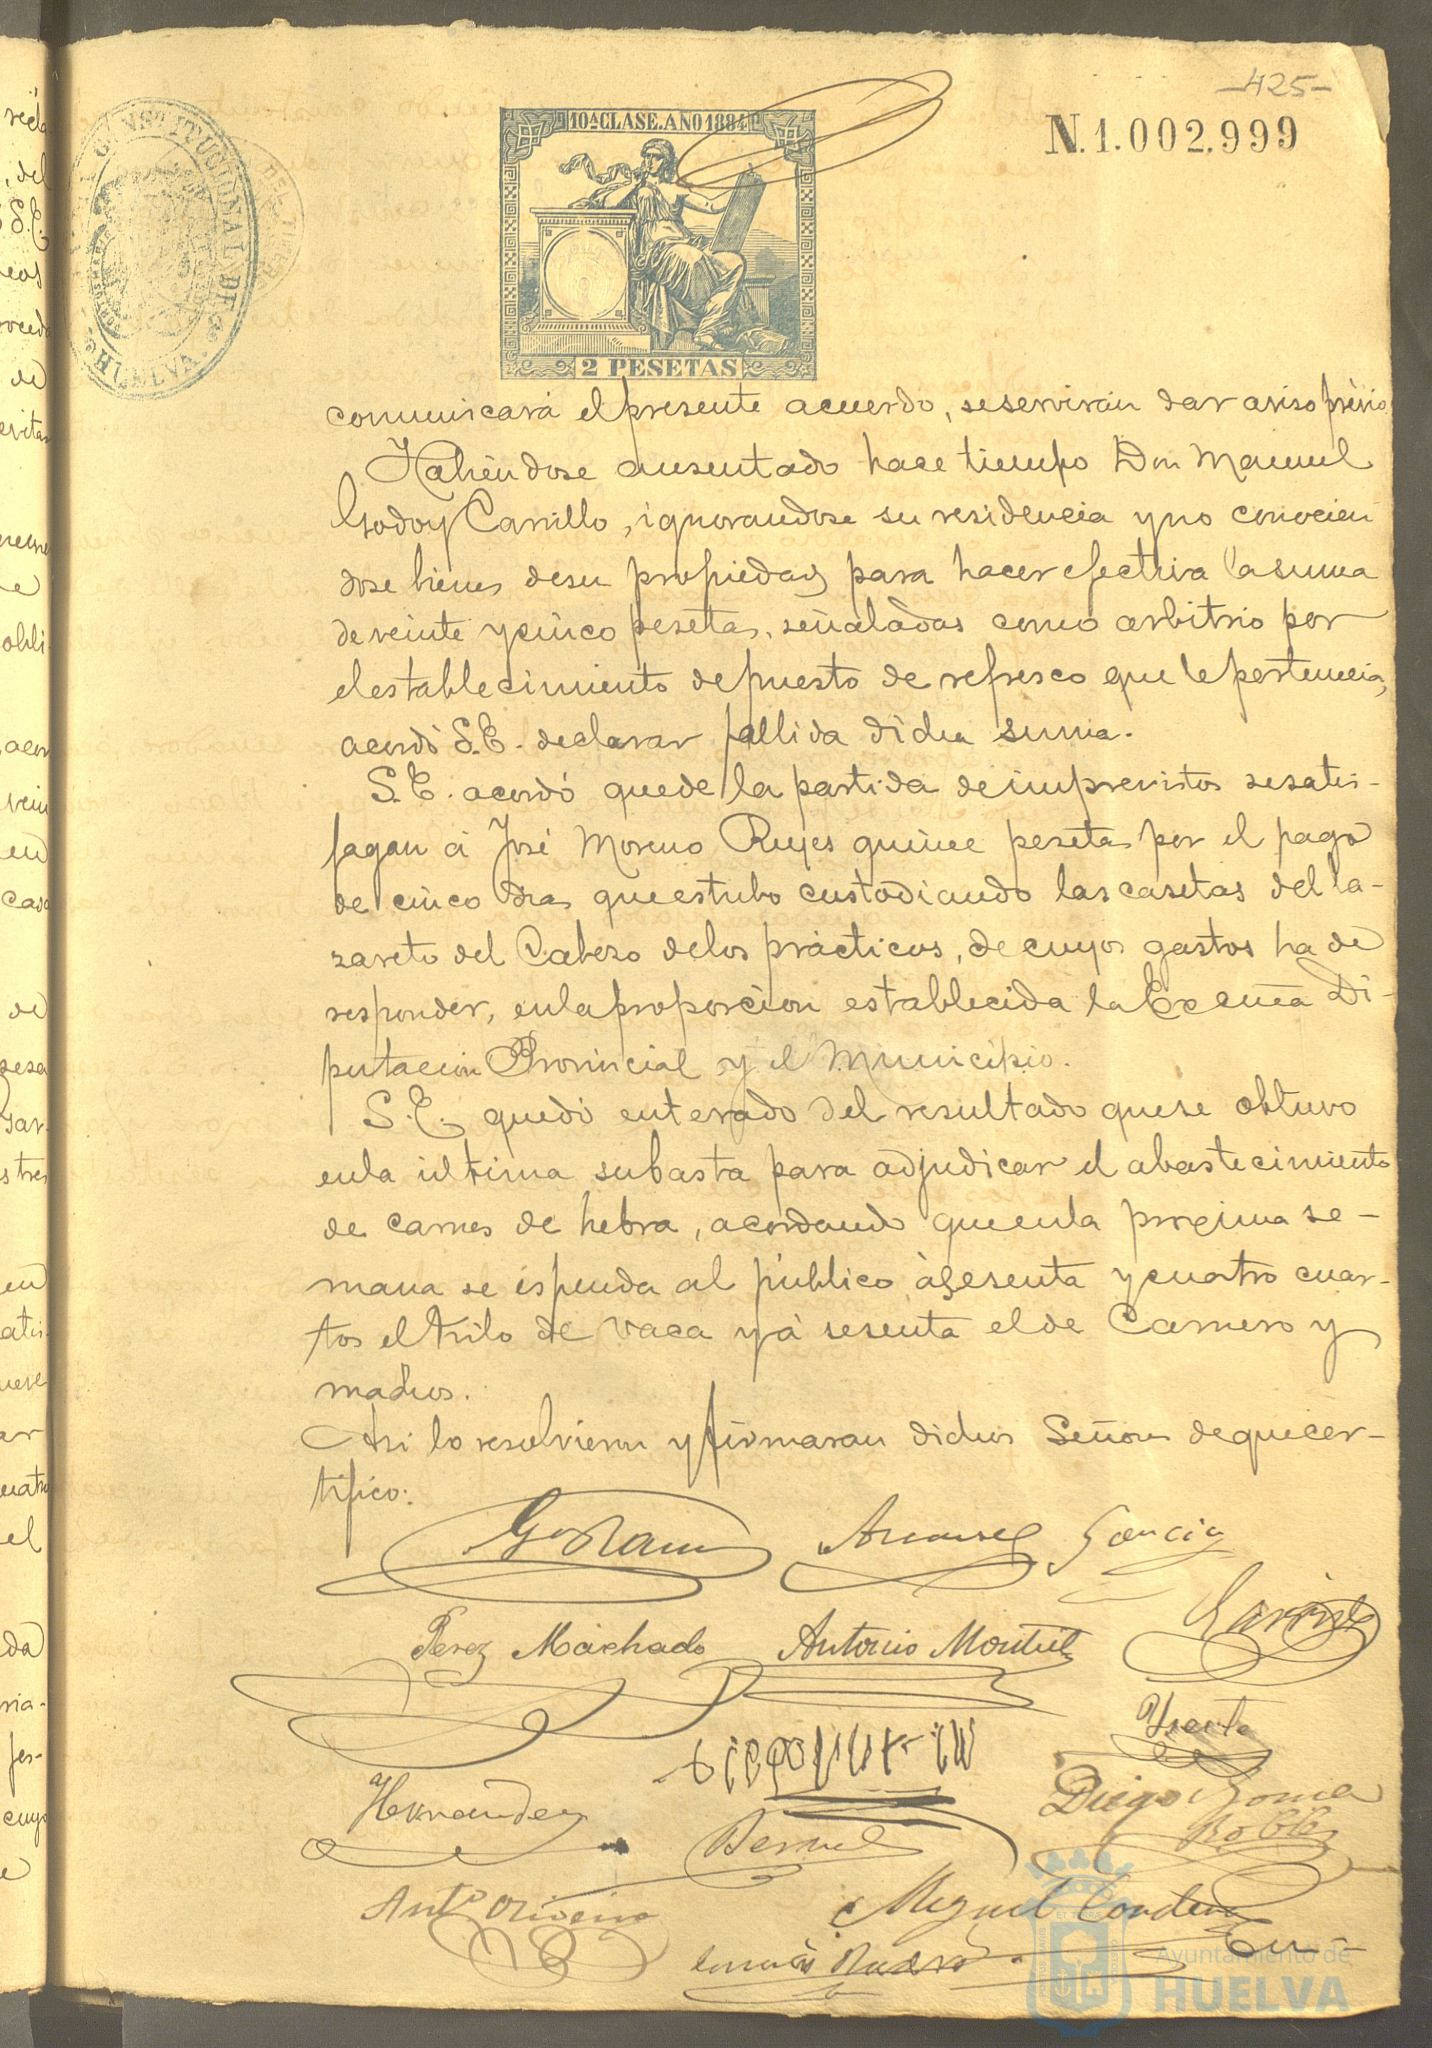 -425-
10ª CLASE. AÑO 1884
N. 1.002.999
CONSTITUCIONAL DE
HUELVA.
2 PESETAS
comunicará el presente acuerdo, se servirán dar aviso prévio.
Habiéndose ausentado hace tiempo Don Manuel
Godoy Carrillo, ignorandose su residencia y no conocien
dose bienes de su propiedad para hacer efectiva la suma
de veinte y cinco pesetas, señaladas como arbitrio por
el establecimiento de puesto de refresco que le pertenecia,
acordó S.E. declarar fallida dicha suma.
S.E. acordó que de la partida de imprevistos se satis-
fagan á José Moreno Reyes quince pesetas por el pago
de cinco dias que estubo custodiando las casetas del la-
zareto del Cabezo de los prácticos, de cuyos gastos ha de
responder, en la proporcion establecida la Excmā Di-
putacion Provincial y el Municipio.
S.E. quedó enterado del resultado que se obtuvo
en la última subasta para adjudicar el abastecimiento
de carnes de hebra, acordando que en la proxima se-
mana se espenda al público á sesenta y cuatro cuar-
tos el kilo de vaca y á sesenta el de Carnero y
machos.
Asi lo resolvieron y firmaran dichos Señores de que cer-
tifico:
Garcia
Perez Machado Antonio Montiel
Hernandez
Bernal
Diego
Robles
Antº Oliveira
Miguel
Ayuntamiento de
HUELVA